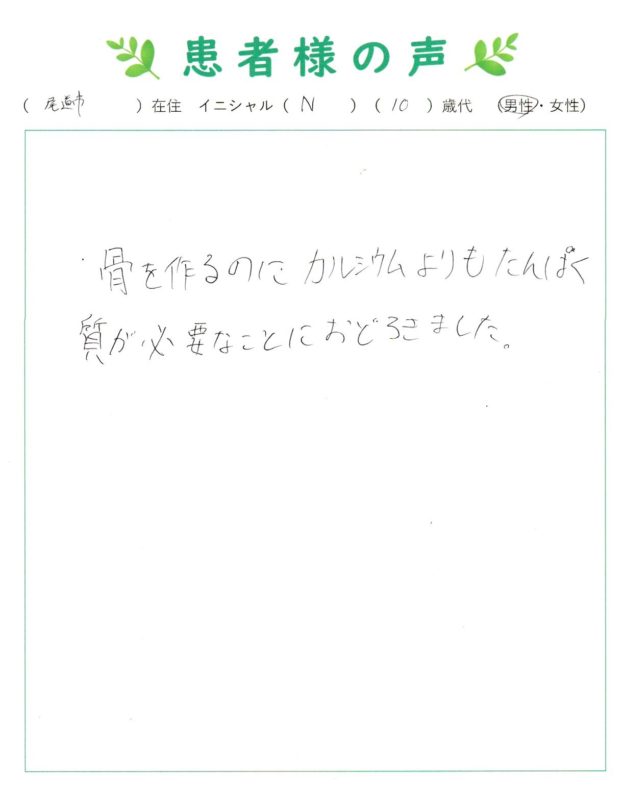 患者様の声
( 尾道市 )在住 イニシャル( N ) ( 10 )歳代 (男性・女性)
・骨を作るのに カルシウムよりも たんぱく
質が必要なことにおどろきました。